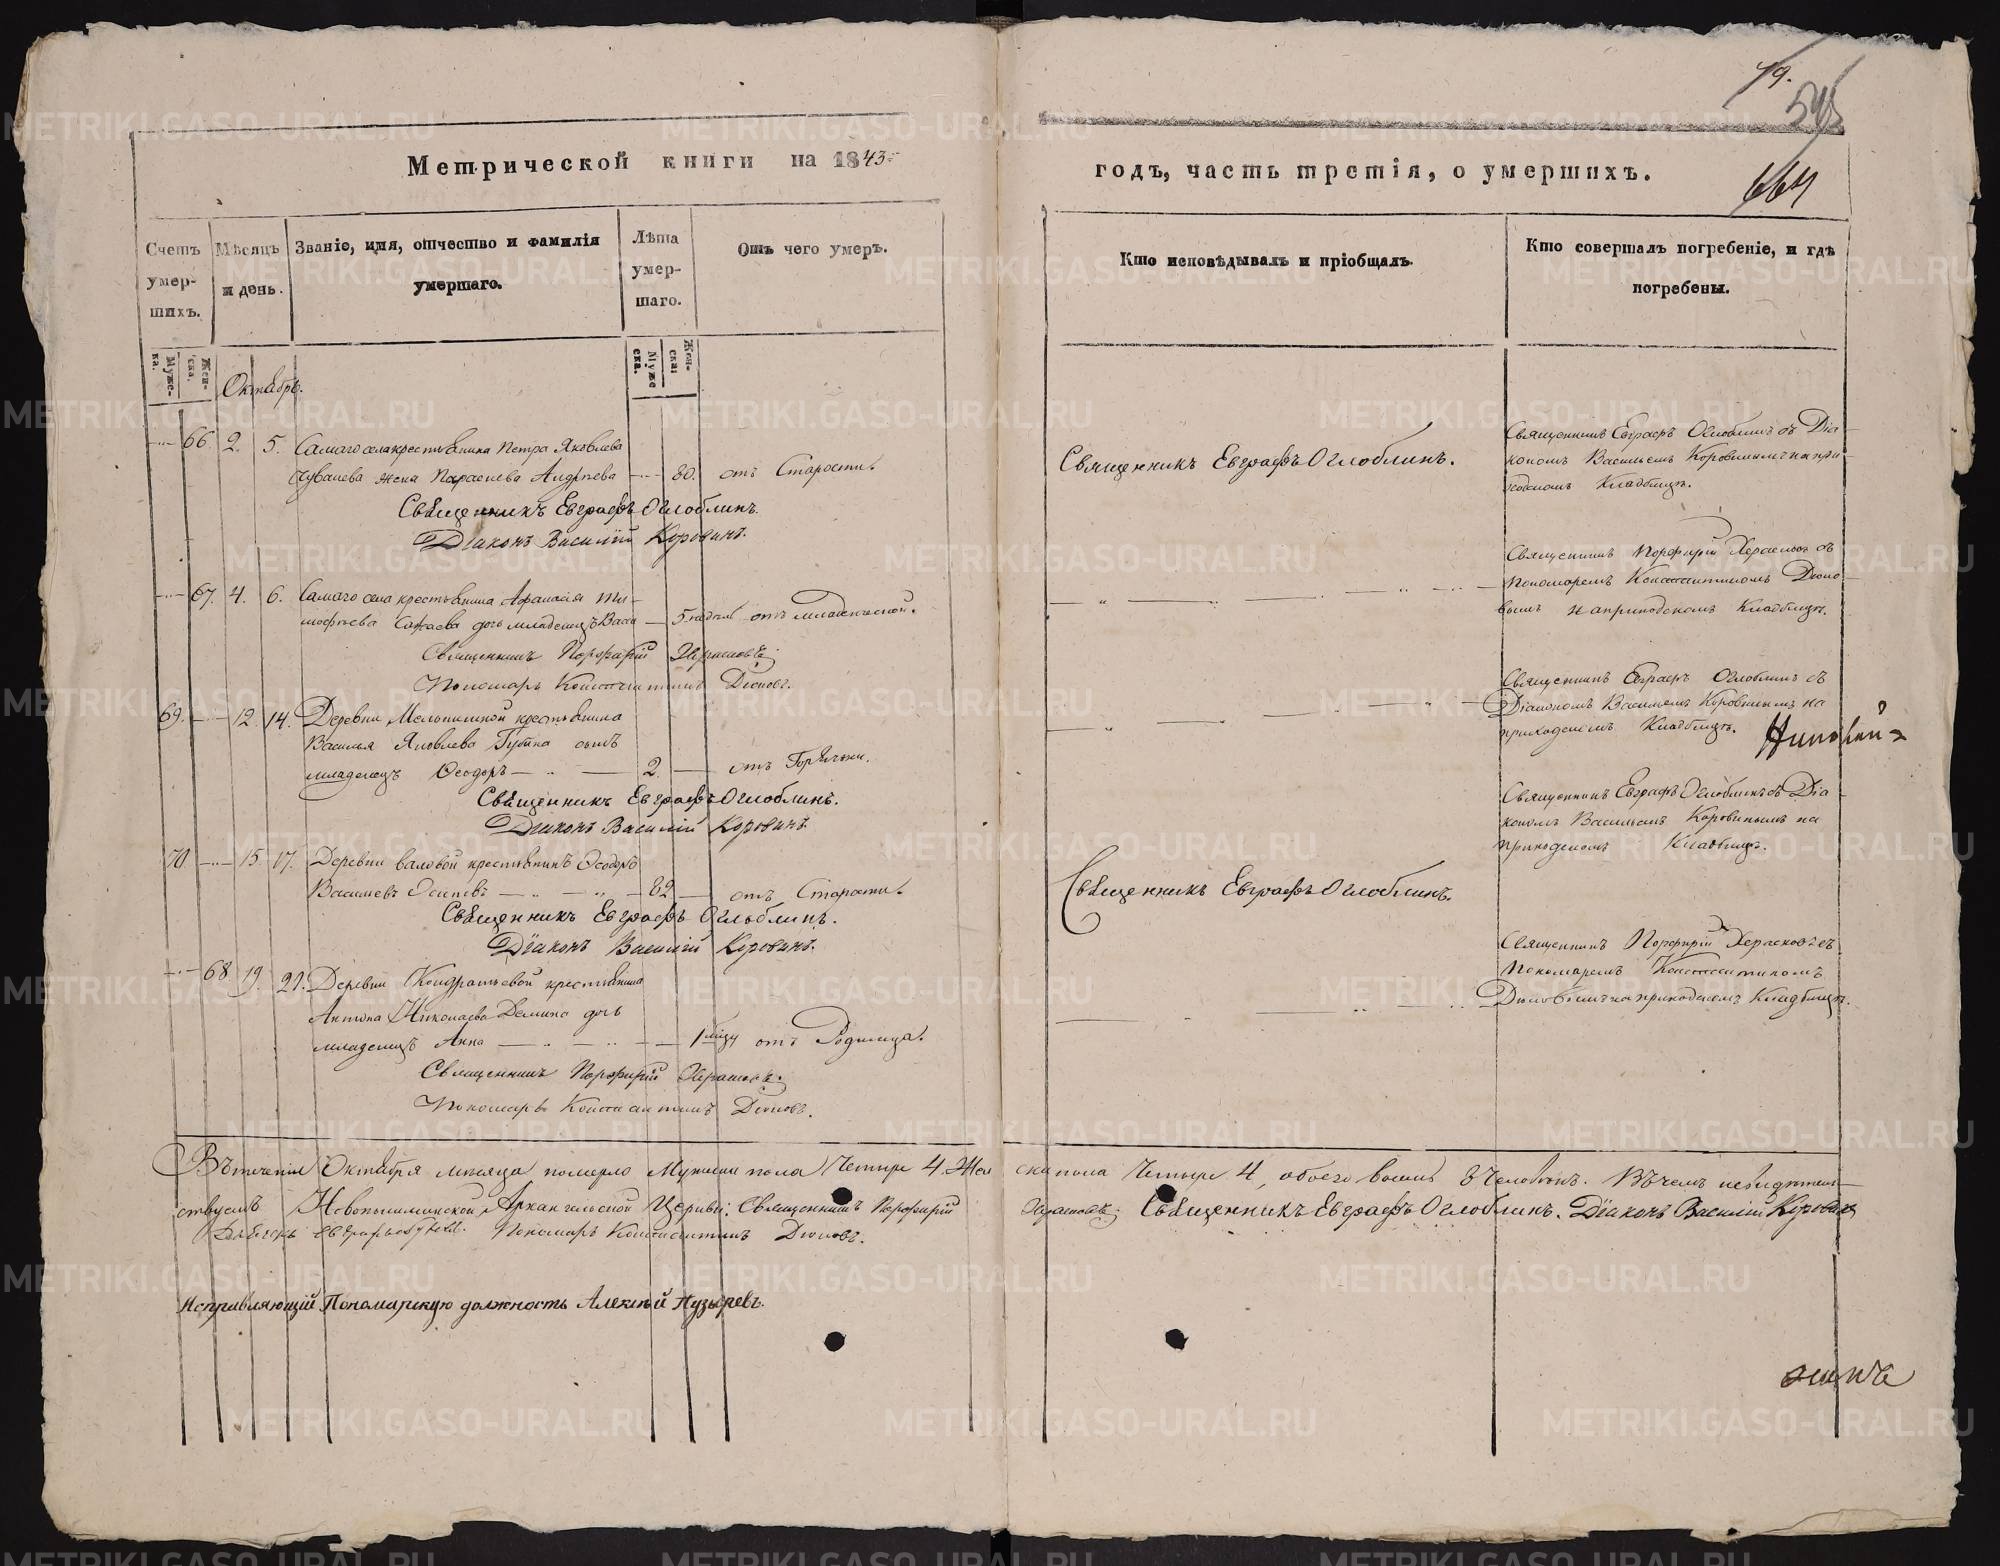 79.
545
664
Метрической книги на 1843
годъ, часть третія, о умершихъ.
Счетъ умер-шихъ.
Мѣсяцъ и день.
Званіе, имя, отчество и фамилія умершаго.
Лѣта умер-шаго.
Отъ чего умеръ.
Кто исповѣдывалъ и пріобщалъ.
Кто совершалъ погребеніе, и гдѣ погребены.
Муже-ка.
Жен-ска.
Муже ска.
Жен-ска:
Октябрь.
66 2. 5. Самаго села крестьянина Петра Яковлева
Чувашева жена Параскева Андреева 80. отъ Старости.
Священникъ Евграфъ Оглоблинъ.
Діаконъ Василій Коровинъ.
Священникъ Евграфъ Оглоблинъ.
Священникъ Евграфъ Оглоблинъ съ Діа-
кономъ Васильемъ Коровинымъ на при-
ходскомъ Кладбищѣ.
67. 4. 6. Самаго села крестьянина Афанасія Ти-
мофѣева дочь младенецъ 5 недѣль отъ младенческой.
Священникъ Порфирій Херасковъ
Пономарь Константинъ Дюковъ.
Священникъ Порфирій Херасковъ съ
Пономаремъ Константиномъ Дюко-
вымъ на приходскомъ Кладбищѣ.
69. 12. 14. Деревни крестьянина
Василья Яковлева сынъ
младенецъ Ѳеодоръ 2. отъ Горячки.
Священникъ Евграфъ Оглоблинъ.
Діаконъ Василій Коровинъ.
Священникъ Евграфъ Оглоблинъ съ
Діакономъ Васильемъ Коровинымъ на
приходскомъ Кладбищѣ.
70 15 17. Деревни Валовой крестьянинъ Ѳеодоръ
Васильевъ Осиповъ 82 отъ Старости.
Священникъ Евграфъ Оглоблинъ.
Діаконъ Василій Коровинъ.
Священникъ Евграфъ Оглоблинъ.
Священникъ Евграфъ Оглоблинъ съ Діа-
кономъ Васильемъ Коровинымъ на
приходскомъ Кладбищѣ.
68. 19. 21. Деревни Кондратьевой крестьянина
Антона Николаева Демина дочь
младенецъ Анна 1 мѣся отъ Родимца.
Священникъ Порфирій Херасковъ.
Пономарь Константинъ Дюковъ.
Священникъ Порфирій Херасковъ съ
Пономаремъ Константиномъ
Дюковымъ на приходскомъ Кладбищѣ.
Въ теченіи Октября мѣсяца померло Мужеска пола Четыре 4. Жен
ска пола Четыре 4, обоего восемь 8 Человѣкъ. Въ чемъ и свидѣтель-
ствуемъ Новопышминской Архангельской Церкви: Священникъ Порфирій
Херасковъ; Священникъ Евграфъ Оглоблинъ. Діаконъ Василій Коровинъ
Пономарь Константинъ Дюковъ.
Исправляющій Пономарскую должность Алексѣй Пузыревъ.
METRIKI.GASO-URAL.RU